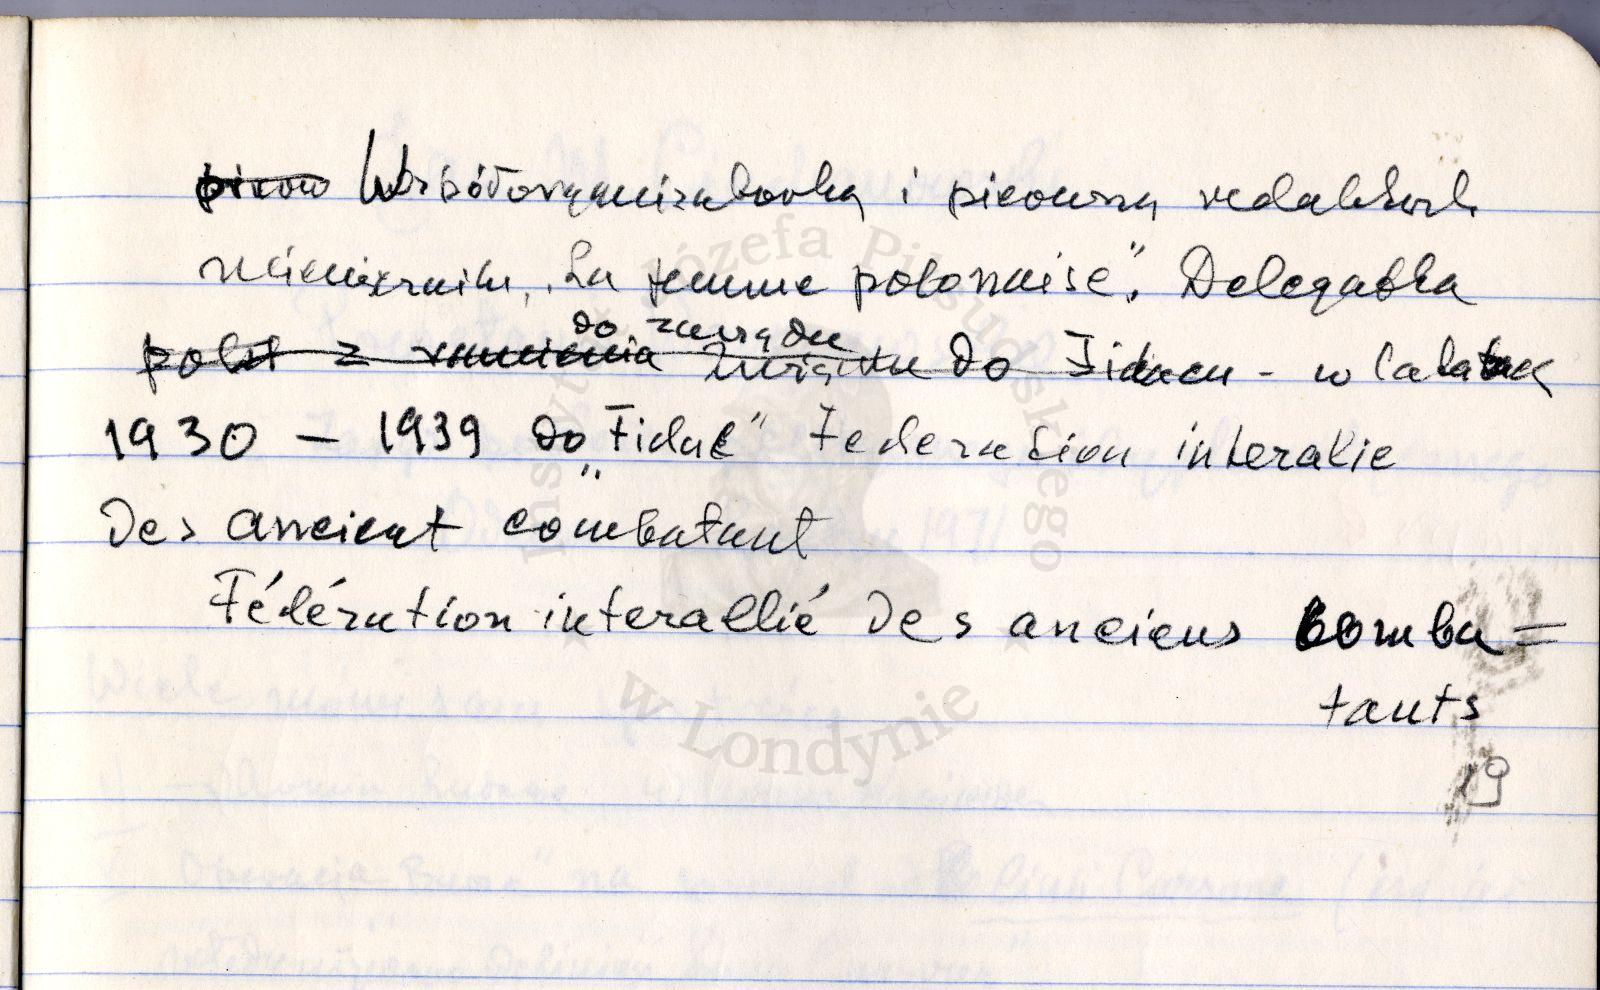 pierw Współorganizatorką i pierwszą redaktork
miesięcznika, „La femme polonaise”. Delegatka
do zarządu
polst z ramienia Związku do Fidacu - w latatach
1930 – 1939 do „Fidac” Federasion interalie
des ancient combatant
Fédération interallié des anciens comba=
tants
19
Instytut Józefa Piłsudskiego
w Londynie